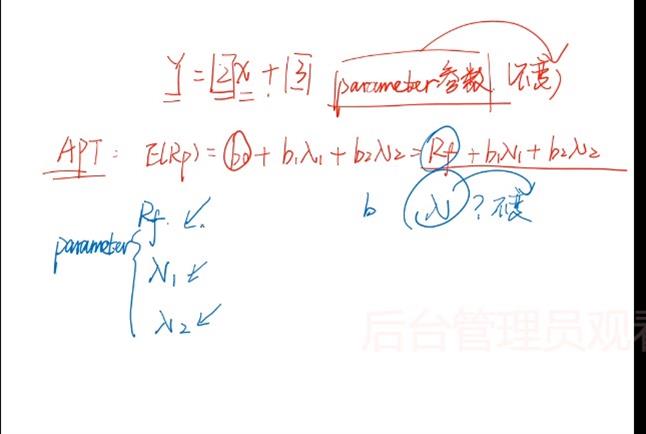 Y = 2x + 3 parameter 参数 (不变)
APT: E(Rp) = b0 + b1λ1 + b2λ2 = Rf + b1λ1 + b2λ2
b λ ? 不变
Rf
parameter
λ1
λ2
后台管理员观看